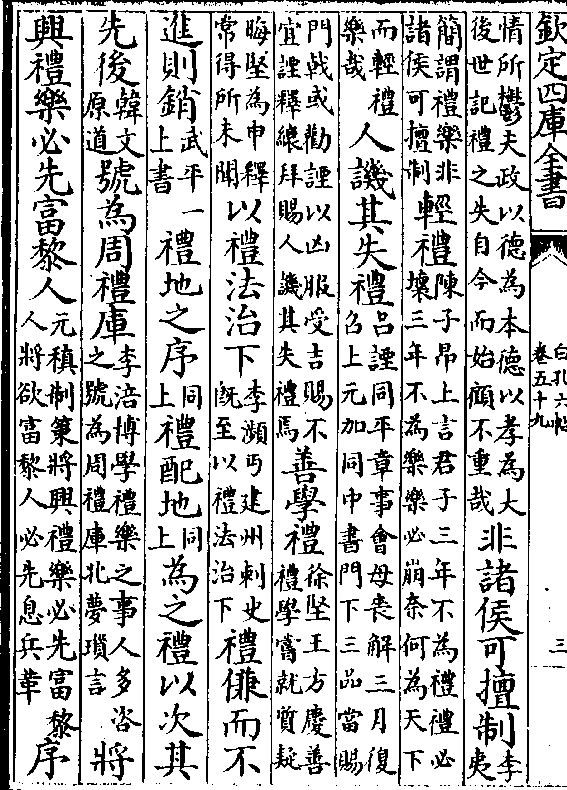 欽定四庫全書
白孔六帖
卷五十九
三
情所鬱夫政以德為本德以孝為大
後世記禮之失自今而始顧不重哉
非諸侯可擅制
李夷
簡謂禮樂非
諸侯可擅制
輕禮
陳子昂上言君子三年不為禮禮必
壞三年不為樂樂必崩奈何為天下
而輕禮
樂哉
人譏其失禮
吕諲同平章事會母喪解三月復
召上元加同中書門下三品當賜
門戟或勸諲以凶服受吉賜不
宜諲釋縗拜賜人譏其失禮焉
善學禮
徐堅王方慶善
禮學嘗就質疑
晦堅為申釋
常得所未聞
以禮法治下
李頻丐建州刺史
既至以禮法治下
禮慊而不
進則銷
武平一
上書
禮地之序
同
上
禮配地
同
上
為之禮以次其
先後
韓文
原道
號為周禮庫
李涪博學禮樂之事人多咨
之號為周禮庫北夢瑣言
將
興禮樂必先富黎人
元稹制策將興禮樂必先富黎
人將欲富黎人必先息兵革
序